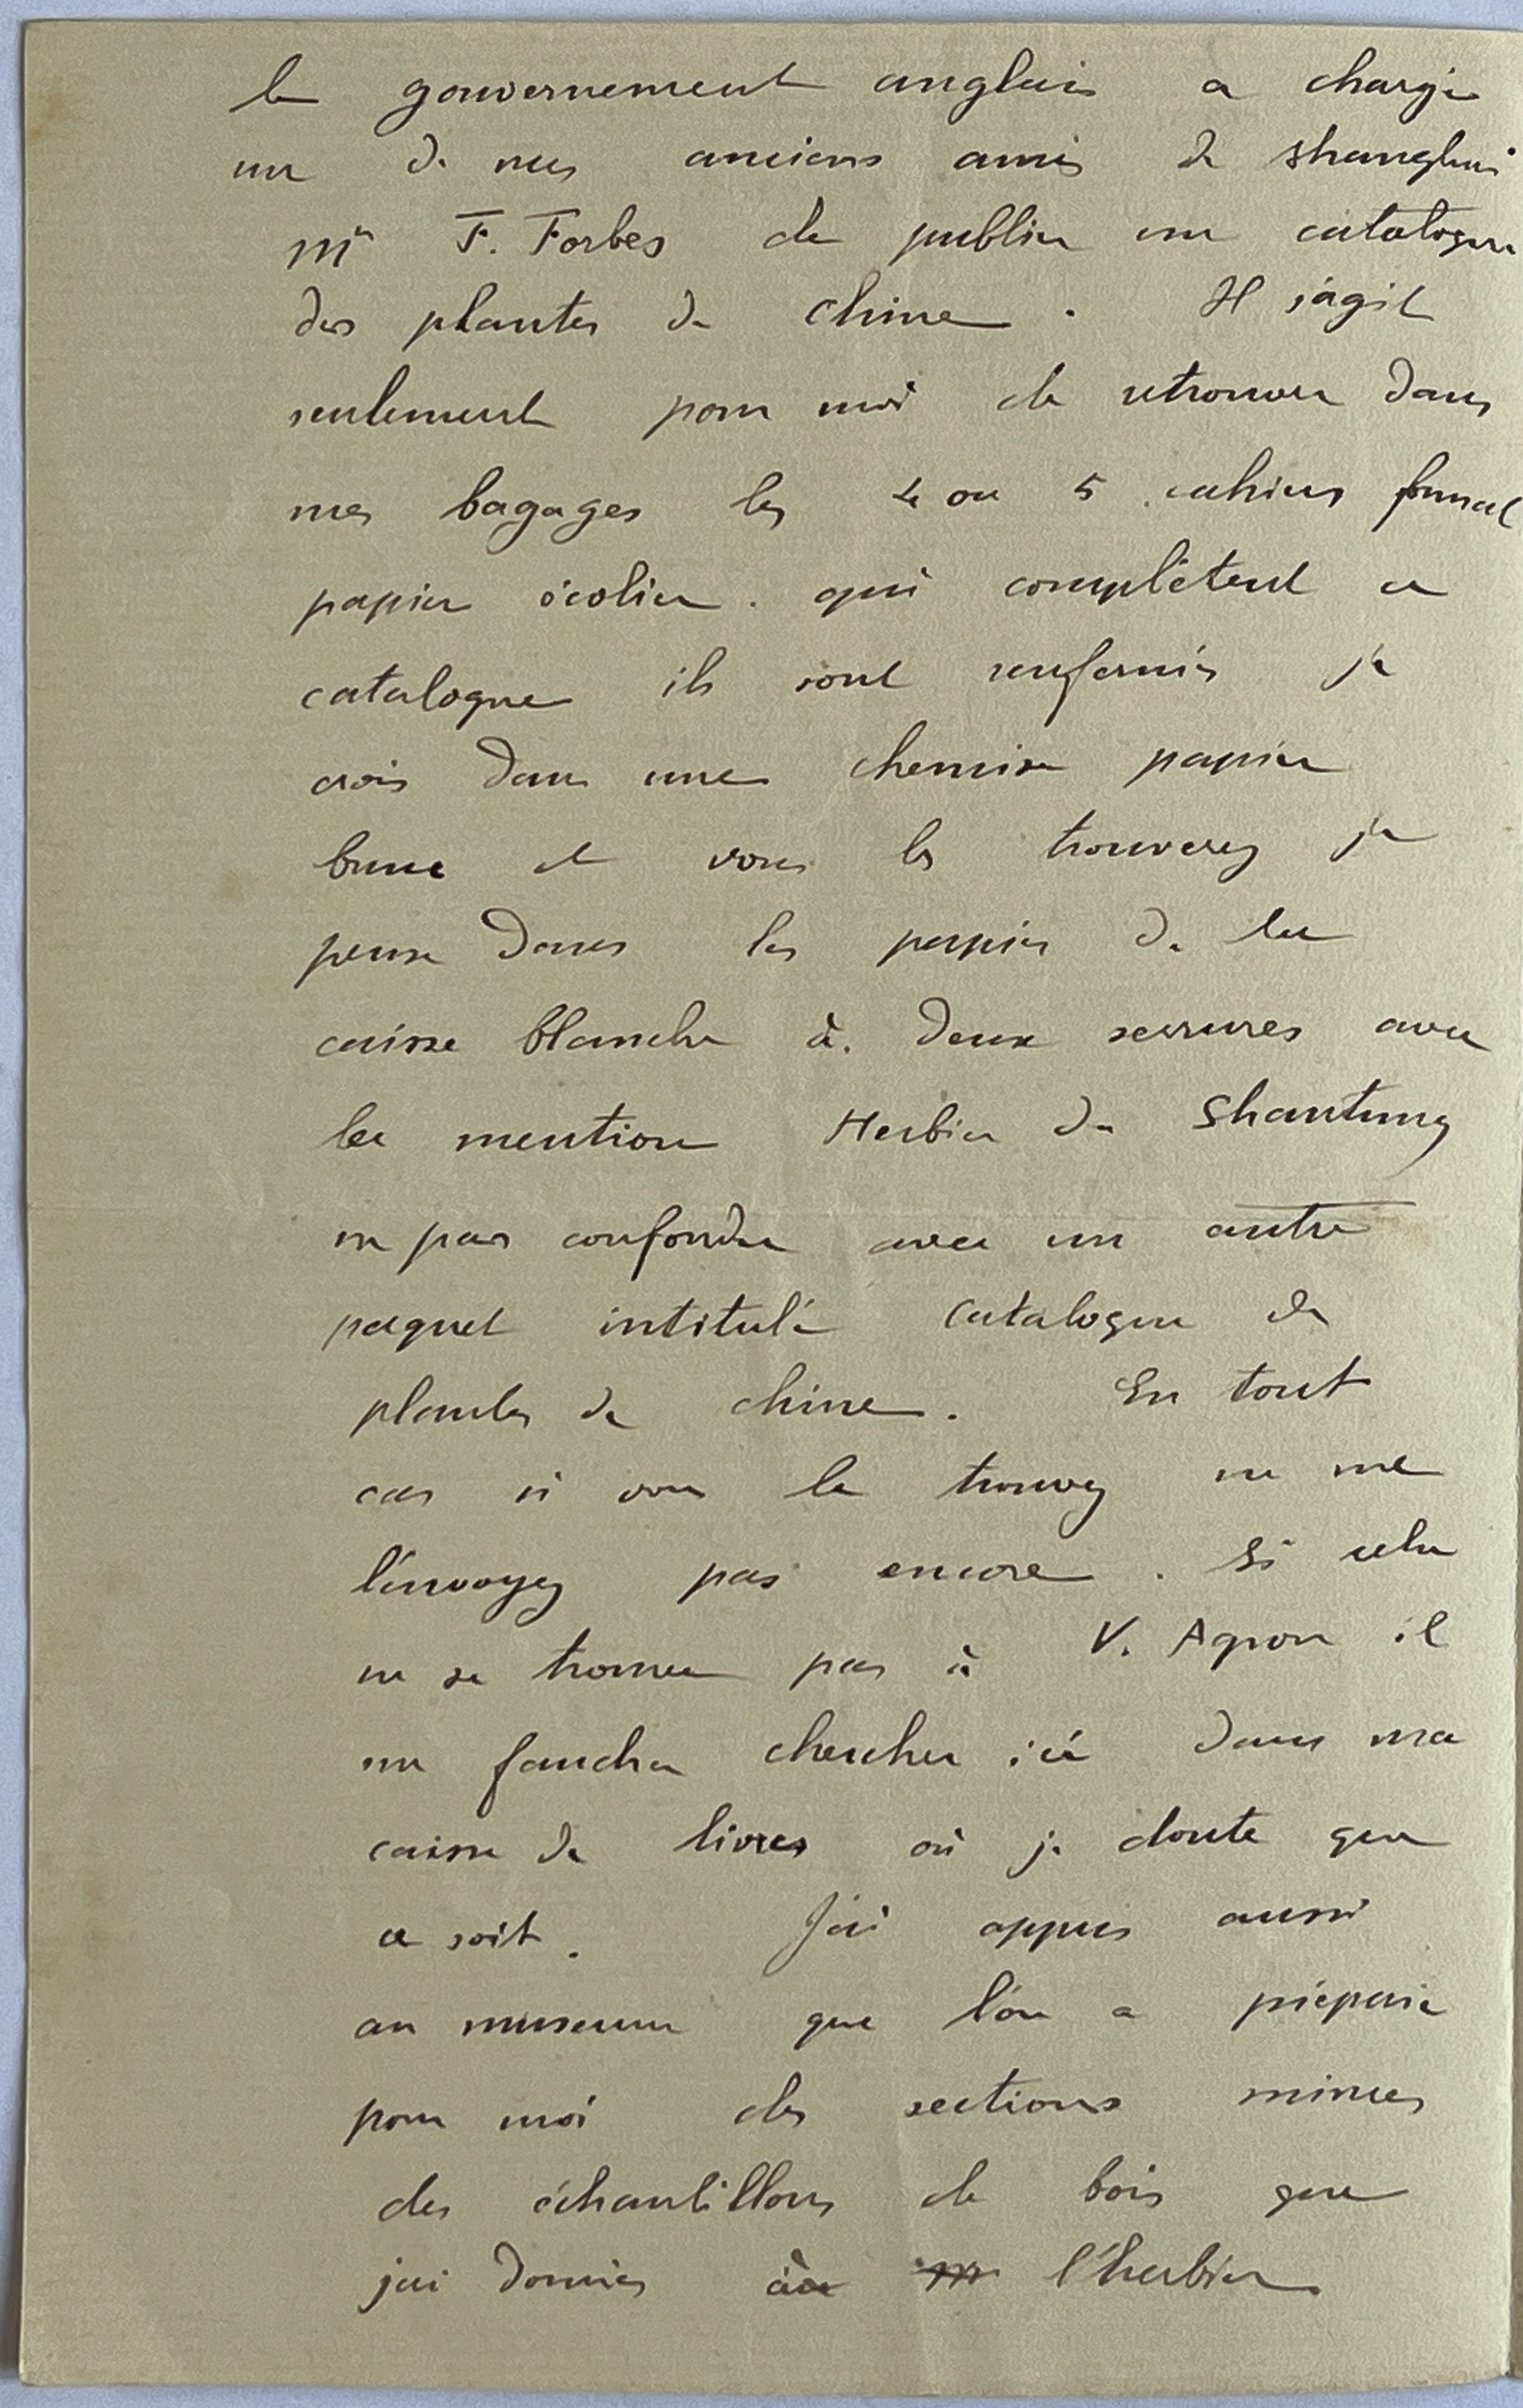 le gouvernement anglais a chargé
un de nos anciens amis de shanghai
Mr F. Forbes de publier un catalogue
des plantes de chine. Il s'agit
seulement pour moi de retrouver dans
mes bagages les 4 ou 5 cahiers format
papier écolier. qui complètent ce
catalogue ils sont renfermés je
crois dans une chemise papier
brune et vous les trouverez je
pense dans les papiers de la
caisse blanche à. deux serrures avec
la mention Herbier de Shantung
ne pas confondre avec un autre
paquet intitulé catalogue de
plantes de chine. En tout
cas si vous le trouvez ne me
l'envoyez pas encore. Si cela
ne se trouve pas à V. Agron il
me faudra chercher ici dans ma
caisse de livres où je doute que
ce soit. J'ai appris aussi
au museum que l'on a préparé
pour moi des sections minces
des échantillons de bois que
j'ai donnés à l'herbier